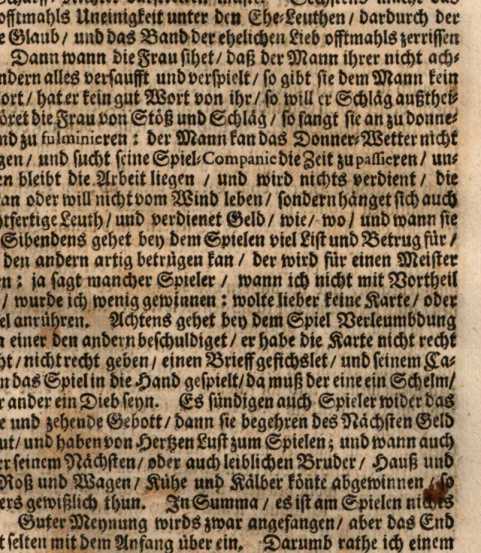 offtmahls Uneinigkeit unter den Ehe-Leuthen / dardurch der
e Glaub / und das Band der ehelichen Lieb offtmahls zerrissen
Dann wann die Frau sihet / daß der Mann ihrer nicht ach-
ndern alles versaufft und verspielt / so gibt sie dem Mann kein
ort / hat er kein gut Wort von ihr / so will er Schläg außthei-
öret die Frau von Stöß und Schläg / so fangt sie an zu donne-
nd zu fulminieren : der Mann kan das Donner-Wetter nicht
gen / und sucht seine Spiel-Companie die Zeit zu passieren / un-
en bleibt die Arbeit liegen / und wird nichts verdient / die
an oder will nicht vom Wind leben / sondern hänget sich auch
htfertige Leuth / und verdienet Geld / wie / wo / und wann sie
Sibendens gehet bey dem Spielen viel List und Betrug für /
den andern artig betrügen kan / der wird für einen Meister
en : ja sagt mancher Spieler / wann ich nicht mit Vortheil
/ wurde ich wenig gewinnen : wolte lieber keine Karte / oder
el anrühren. Achtens gehet bey dem Spiel Verleumbdung
n einer den andern beschuldiget / er habe die Karte nicht recht
ht / nicht recht geben / einen Brieff gefischlet / und seinem Ca-
n das Spiel in die Hand gespielt / da muß der eine ein Schelm /
r ander ein Dieb seyn. Es sündigen auch Spieler wider das
e und zehende Gebott / dann sie begehren des Nächsten Geld
ut / und haben von Hertzen Lust zum Spielen ; und wann auch
er seinem Nächsten / oder auch leiblichen Bruder / Hauß und
Roß und Wagen / Kühe und Kälber könte abgewinnen / so
ers gewißlich thun. In Summa / es ist am Spielen nichts
Guter Meynung wirds zwar angefangen / aber das End
t selten mit dem Anfang über ein. Darumb rathe ich einem